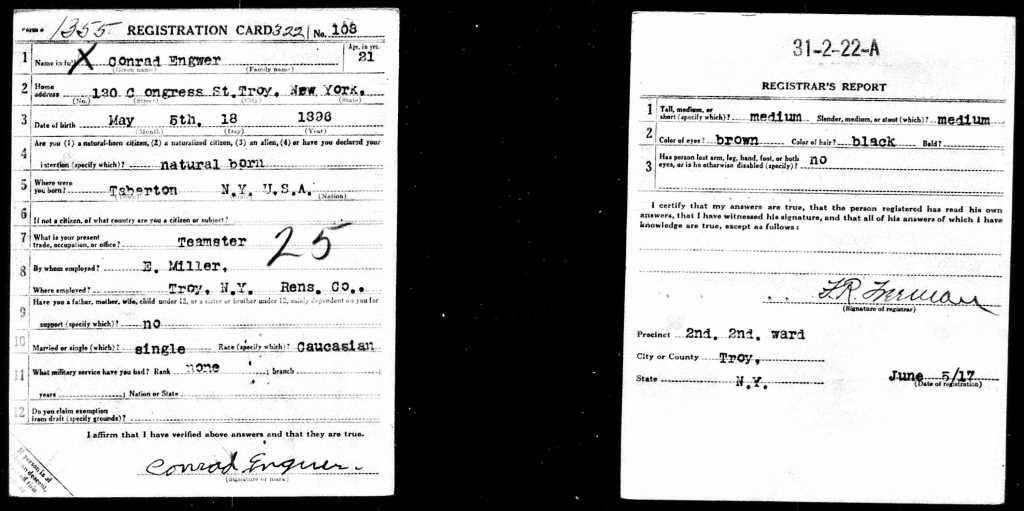 Form 1 1355 REGISTRATION CARD 322 No. 108
1 Name in full X Conrad Engwer Age, in yrs. 21
(Given name) (Family name)
2 Home address 120 C ongress St. Troy, New York.
(No.) (Street) (City) (State)
3 Date of birth May 5th, 18 1896
(Month) (Day) (Year)
4 Are you (1) a natural-born citizen, (2) a naturalized citizen, (3) an alien, (4) or have you declared your
intention (specify which)? natural born
5 Where were you born? Taberton N.Y. U.S.A.
(Nation)
6 If not a citizen, of what country are you a citizen or subject?
7 What is your present trade, occupation, or office? Teamster 25
8 By whom employed? E. Miller,
Where employed? Troy, N.Y. Rens. Co..
9 Have you a father, mother, wife, child under 12, or a sister or brother under 12, solely dependent on you for
support (specify which)? no
10 Married or single (which)? single Race (specify which)? Caucasian
11 What military service have you had? Rank none ; branch
years ; Nation or State
12 Do you claim exemption from draft (specify grounds)?
I affirm that I have verified above answers and that they are true.
Conrad Engwer.
(Signature or mark)
31-2-22-A
REGISTRAR'S REPORT
1 Tall, medium, or short (specify which)? medium Slender, medium, or stout (which)? medium
2 Color of eyes? brown Color of hair? black Bald?
3 Has person lost arm, leg, hand, foot, or both eyes, or is he otherwise disabled (specify)? no
I certify that my answers are true, that the person registered has read his own
answers, that I have witnessed his signature, and that all of his answers of which I have
knowledge are true, except as follows:
F.R. Freeman
(Signature of registrar)
Precinct 2nd. 2nd. ward
City or County Troy,
State N.Y. June 5/17
(Date of registration)